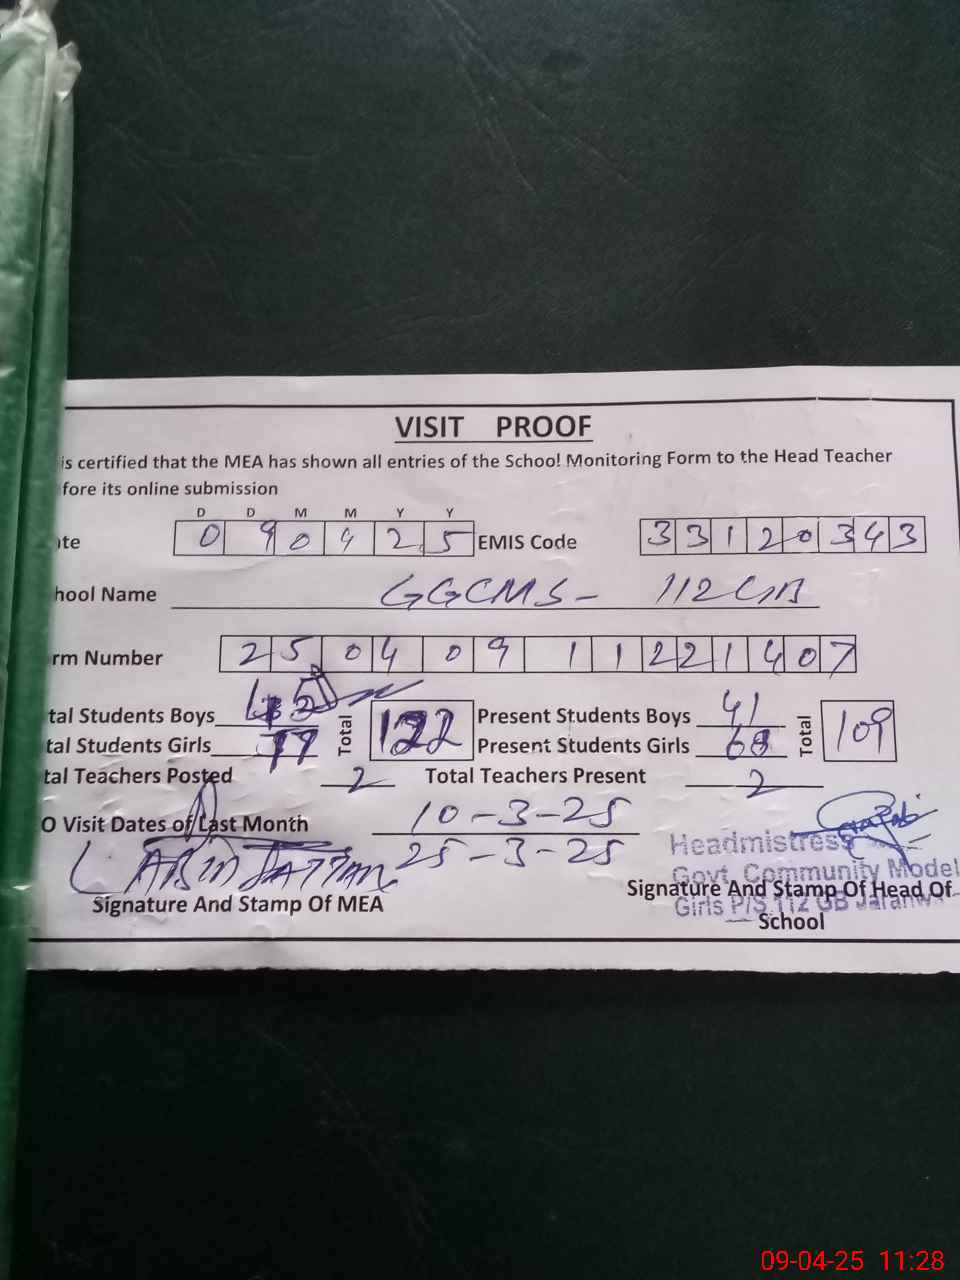 VISIT PROOF
is certified that the MEA has shown all entries of the School Monitoring Form to the Head Teacher
fore its online submission
D D M M Y Y
te 090425 EMIS Code 33120343
hool Name GGCMS- 112 GB
rm Number 25040911221407
tal Students Boys Total 122 Present Students Boys 41 Total 109
tal Students Girls 77 Present Students Girls 68
tal Teachers Posted 2 Total Teachers Present 2
O Visit Dates of Last Month 10-3-25
25-3-25
Headmistress
Govt. Community Model
Girls P/S 112 GB Jaranw
Signature And Stamp Of MEA
Signature And Stamp Of Head Of
School
09-04-25 11:28